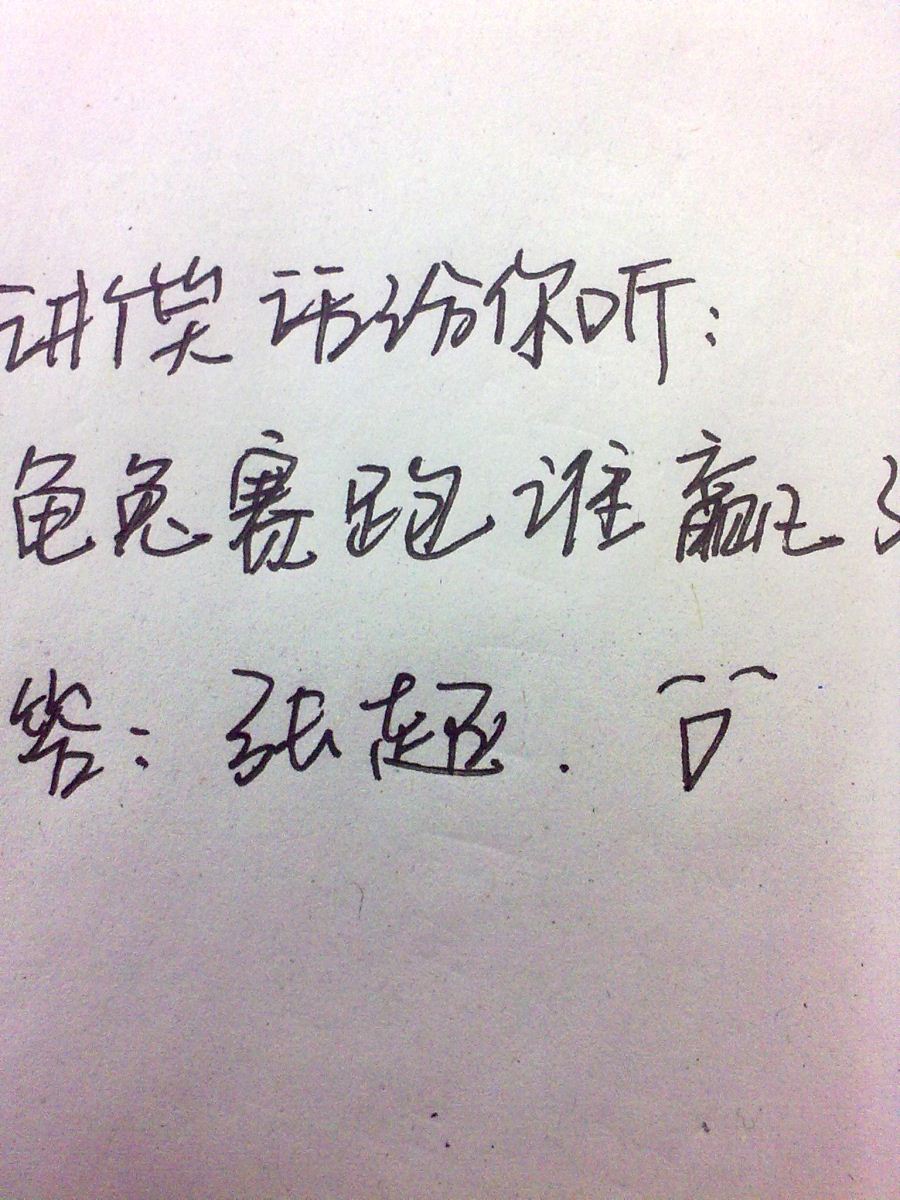 讲个笑话给你听：
龟兔赛跑谁赢了
答：张超．